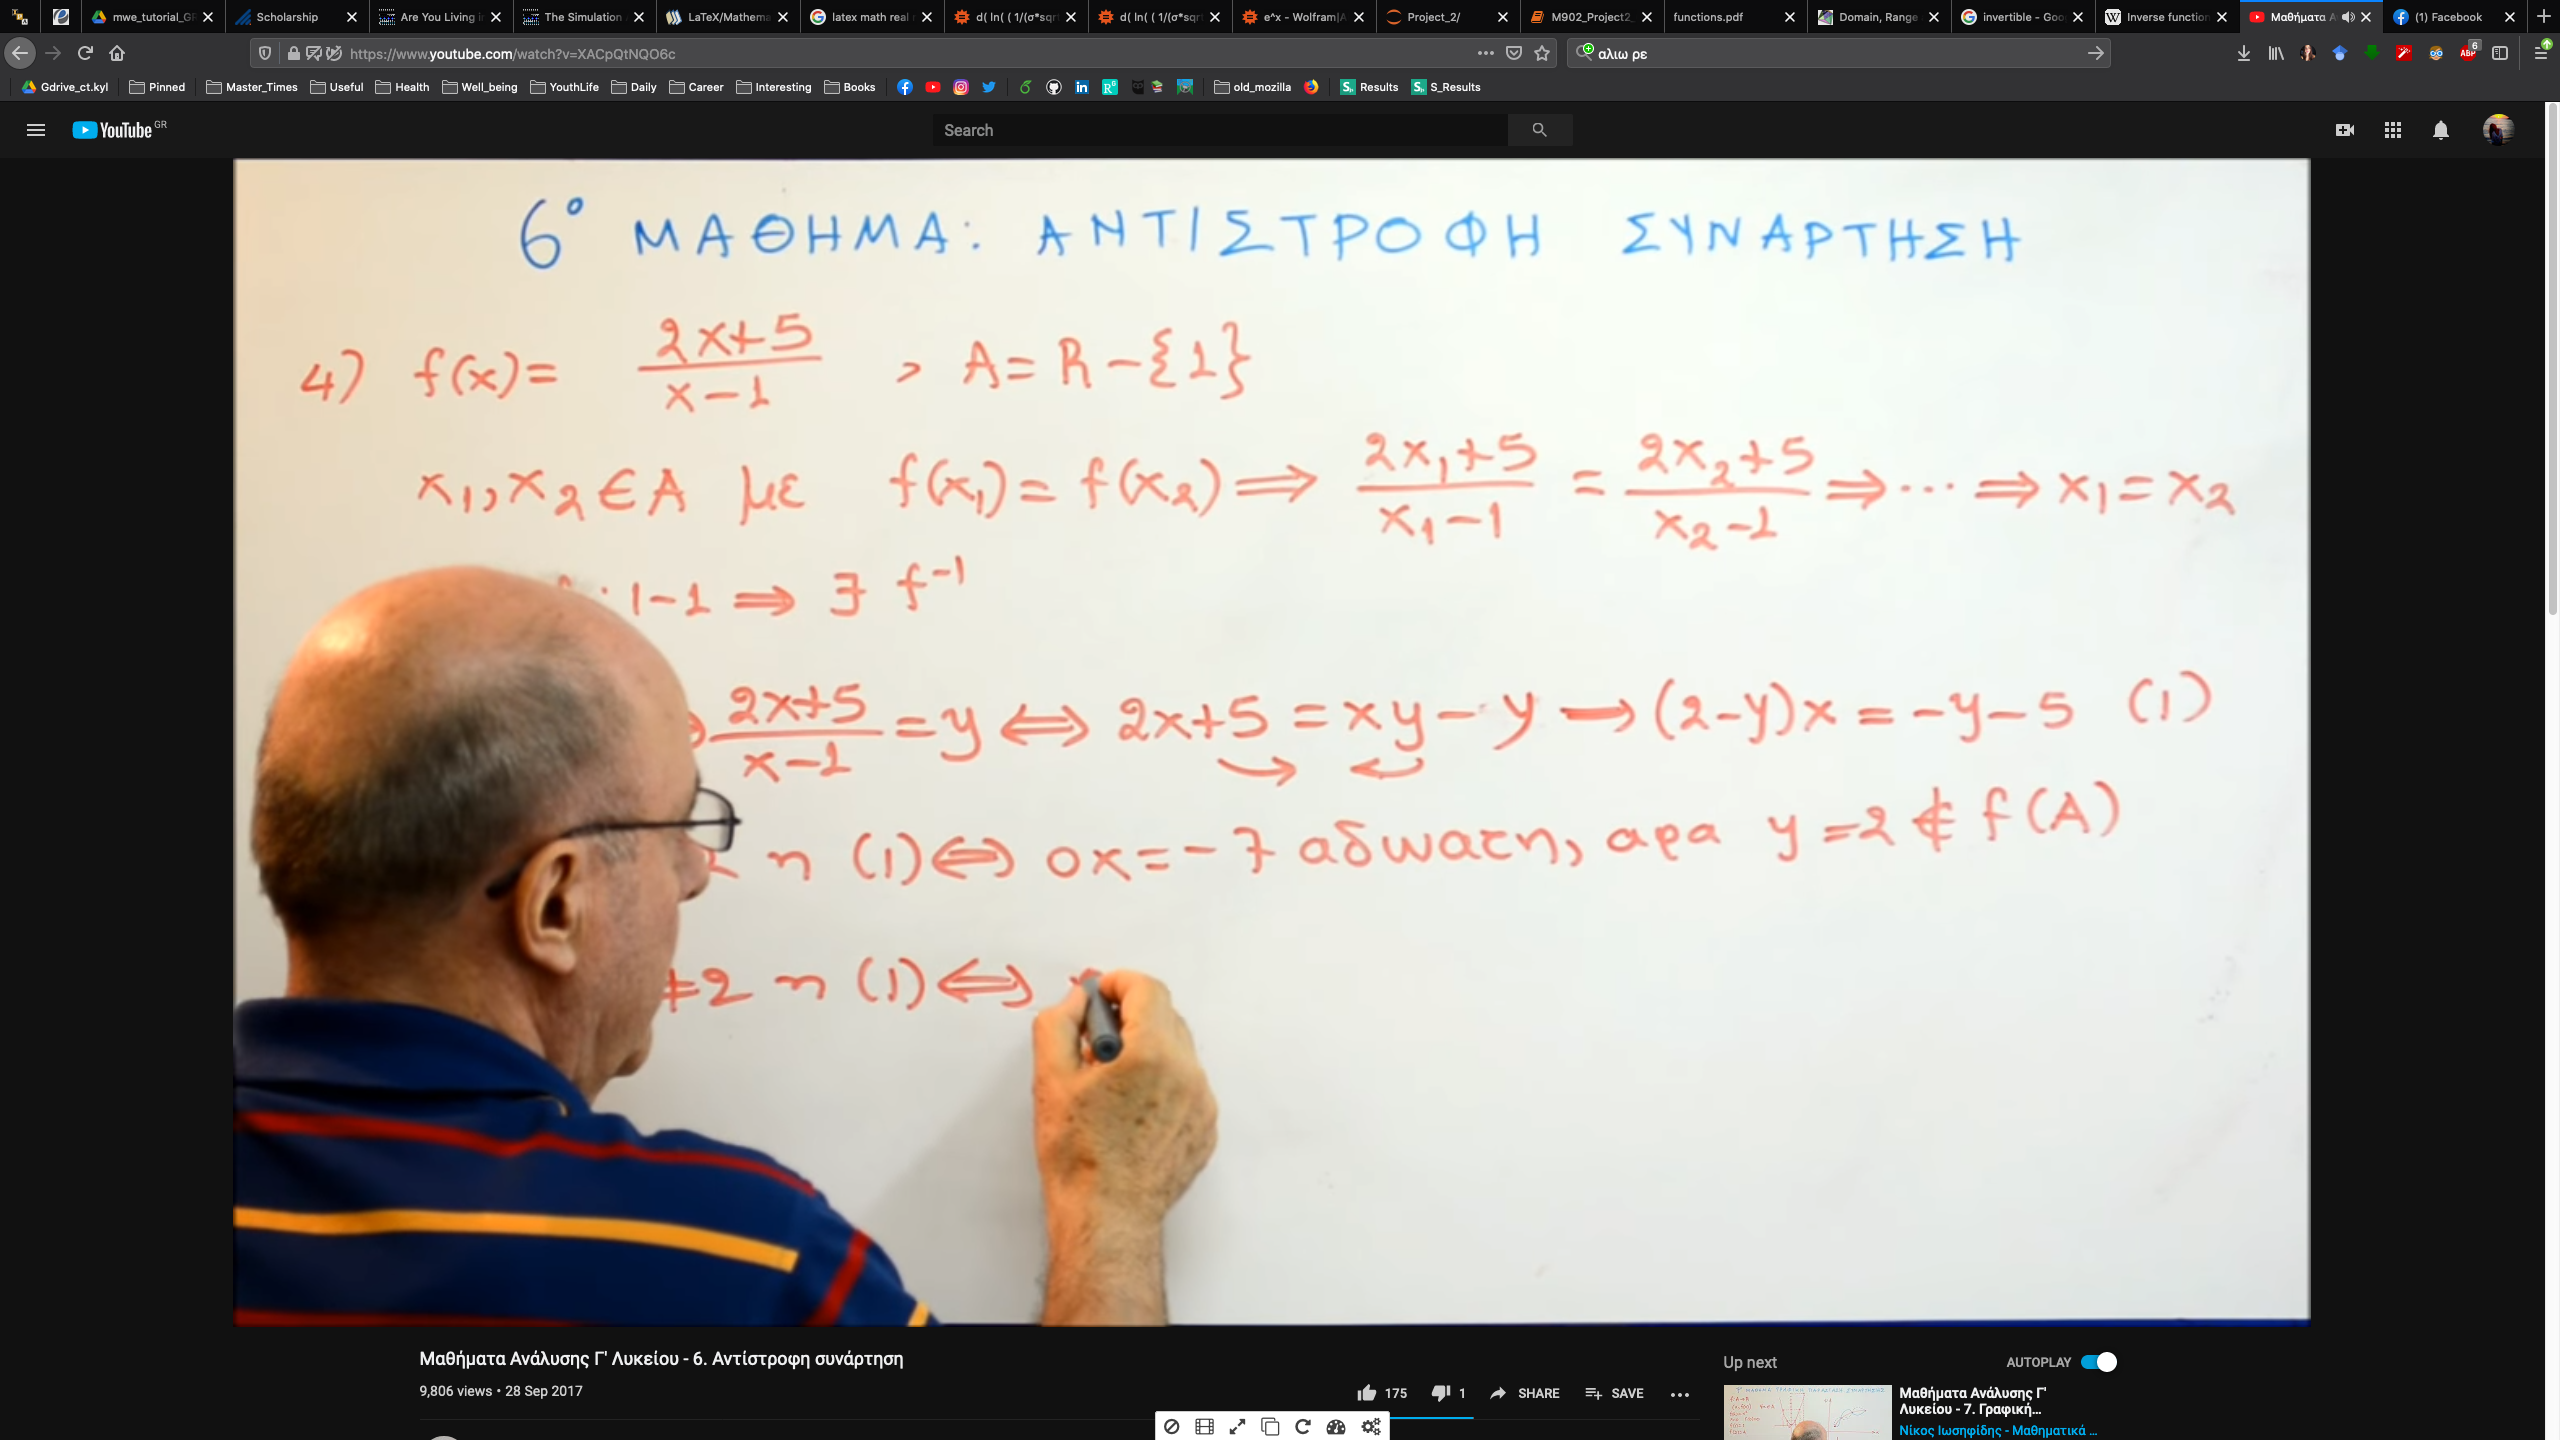 mwe_tutorial_GR
Scholarship
Are You Living i
The Simulation
LaTeX/Mathema
latex math real
d( ln( ( 1/(σ*sqrt
d( ln( ( 1/(σ*sqrt
e^x - Wolfram|A
Project_2/
M902_Project2_
functions.pdf
Domain, Range
invertible - Goo
Inverse function
Μαθήματα Α
(1) Facebook
https://www.youtube.com/watch?v=XACpQtNQO6c
αλιω ρε
6
Gdrive_ct.kyl Pinned Master_Times Useful Health Well_being YouthLife Daily Career Interesting Books old_mozilla Results S_Results
YouTube GR
Search
6° ΜΑΘΗΜΑ: ΑΝΤΙΣΤΡΟΦΗ ΣΥΝΑΡΤΗΣΗ
4) f(x)= (2x+5)/(x-1) , A=R-{1}
x₁,x₂∈A με f(x₁)=f(x₂)⟹ (2x₁+5)/(x₁-1) = (2x₂+5)/(x₂-1) ⟹ ... ⟹ x₁=x₂
: 1-1 ⟹ ∃ f⁻¹
(2x+5)/(x-1) =y ⟺ 2x+5=xy-y → (2-y)x=-y-5 (1)
2 η (1)⟺ 0x=-7 αδυνατη, αρα y=2∉f(A)
≠2 η (1)⟺
Μαθήματα Ανάλυσης Γ' Λυκείου - 6. Αντίστροφη συνάρτηση
9,806 views • 28 Sep 2017
175 1 SHARE SAVE
Up next AUTOPLAY
Μαθήματα Ανάλυσης Γ'
Λυκείου - 7. Γραφική...
Νίκος Ιωσηφίδης - Μαθηματικά ...